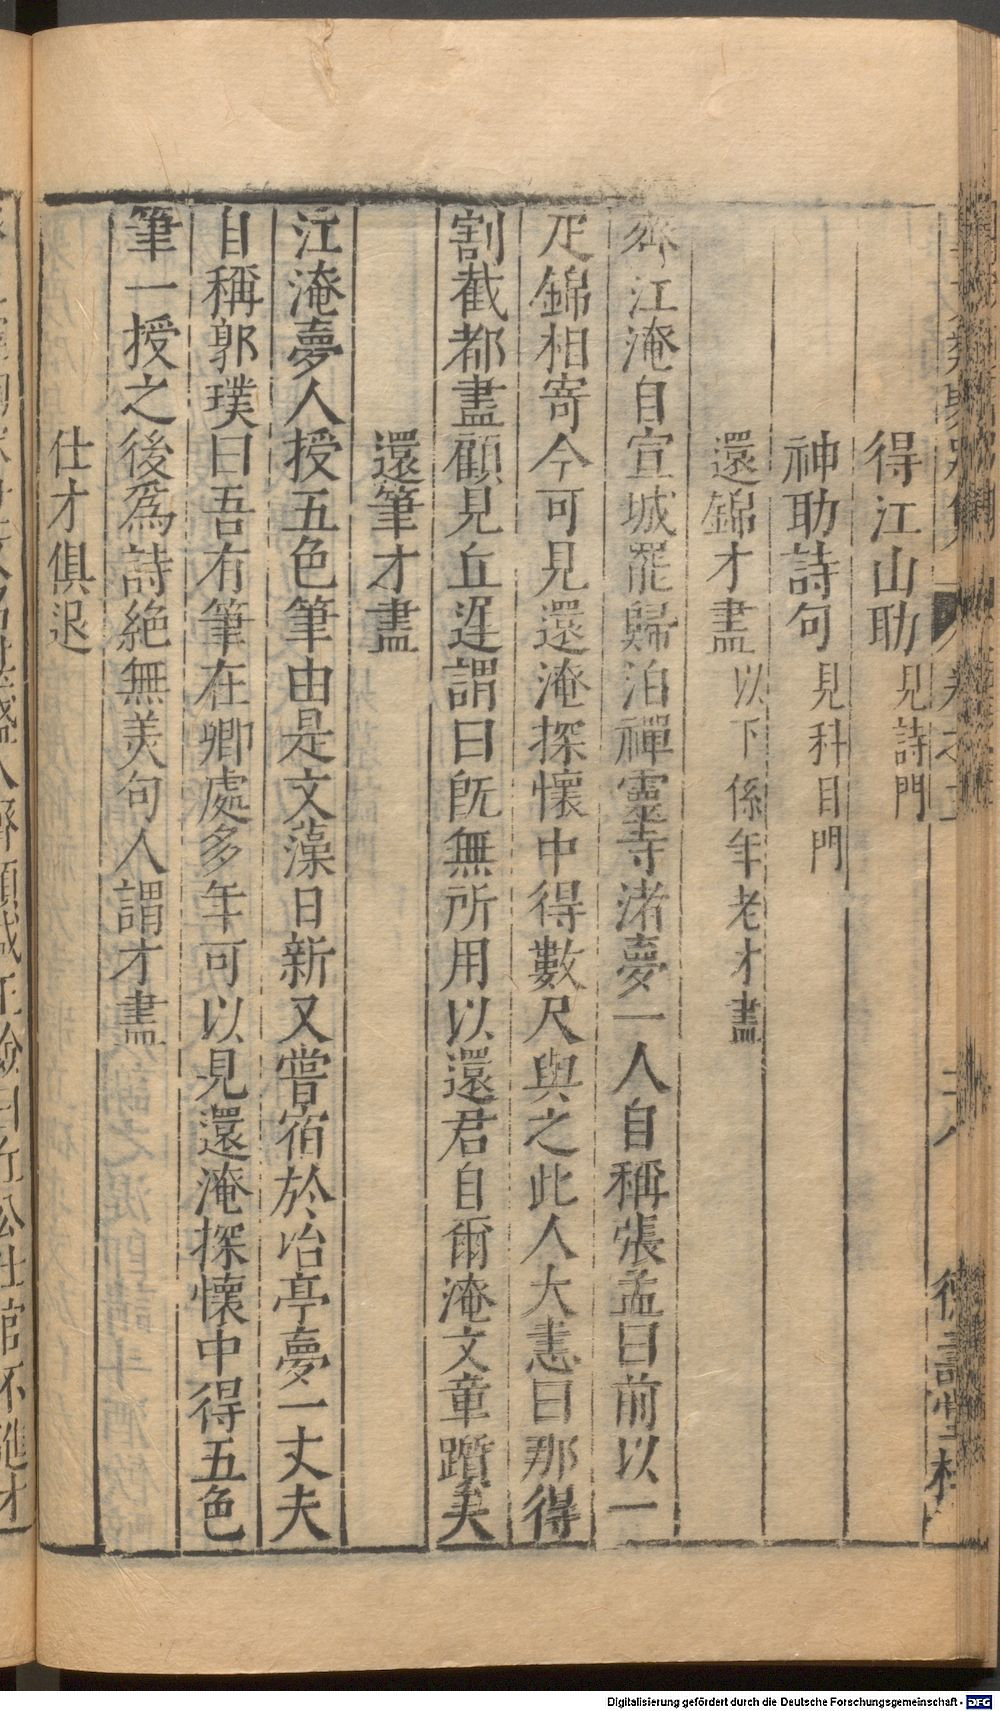 得江山助見詩門
神助詩句見科目門
還錦才盡以下係年老才盡
齊江淹自宣城罷歸泊禪靈寺渚夢一人自稱張孟曰前以一
疋錦相寄今可見還淹探懷中得數尺與之此人大恚曰那得
割截都盡顧見丘遲謂曰旣無所用以還君自爾淹文章躓矣
還筆才盡
江淹夢人授五色筆由是文藻日新又嘗宿於冶亭夢一丈夫
自稱郭璞曰吾有筆在卿處多年可以見還淹探懷中得五色
筆一授之後爲詩絶無美句人謂才盡
仕才俱退
Digitalisierung gefördert durch die Deutsche Forschungsgemeinschaft - DFG